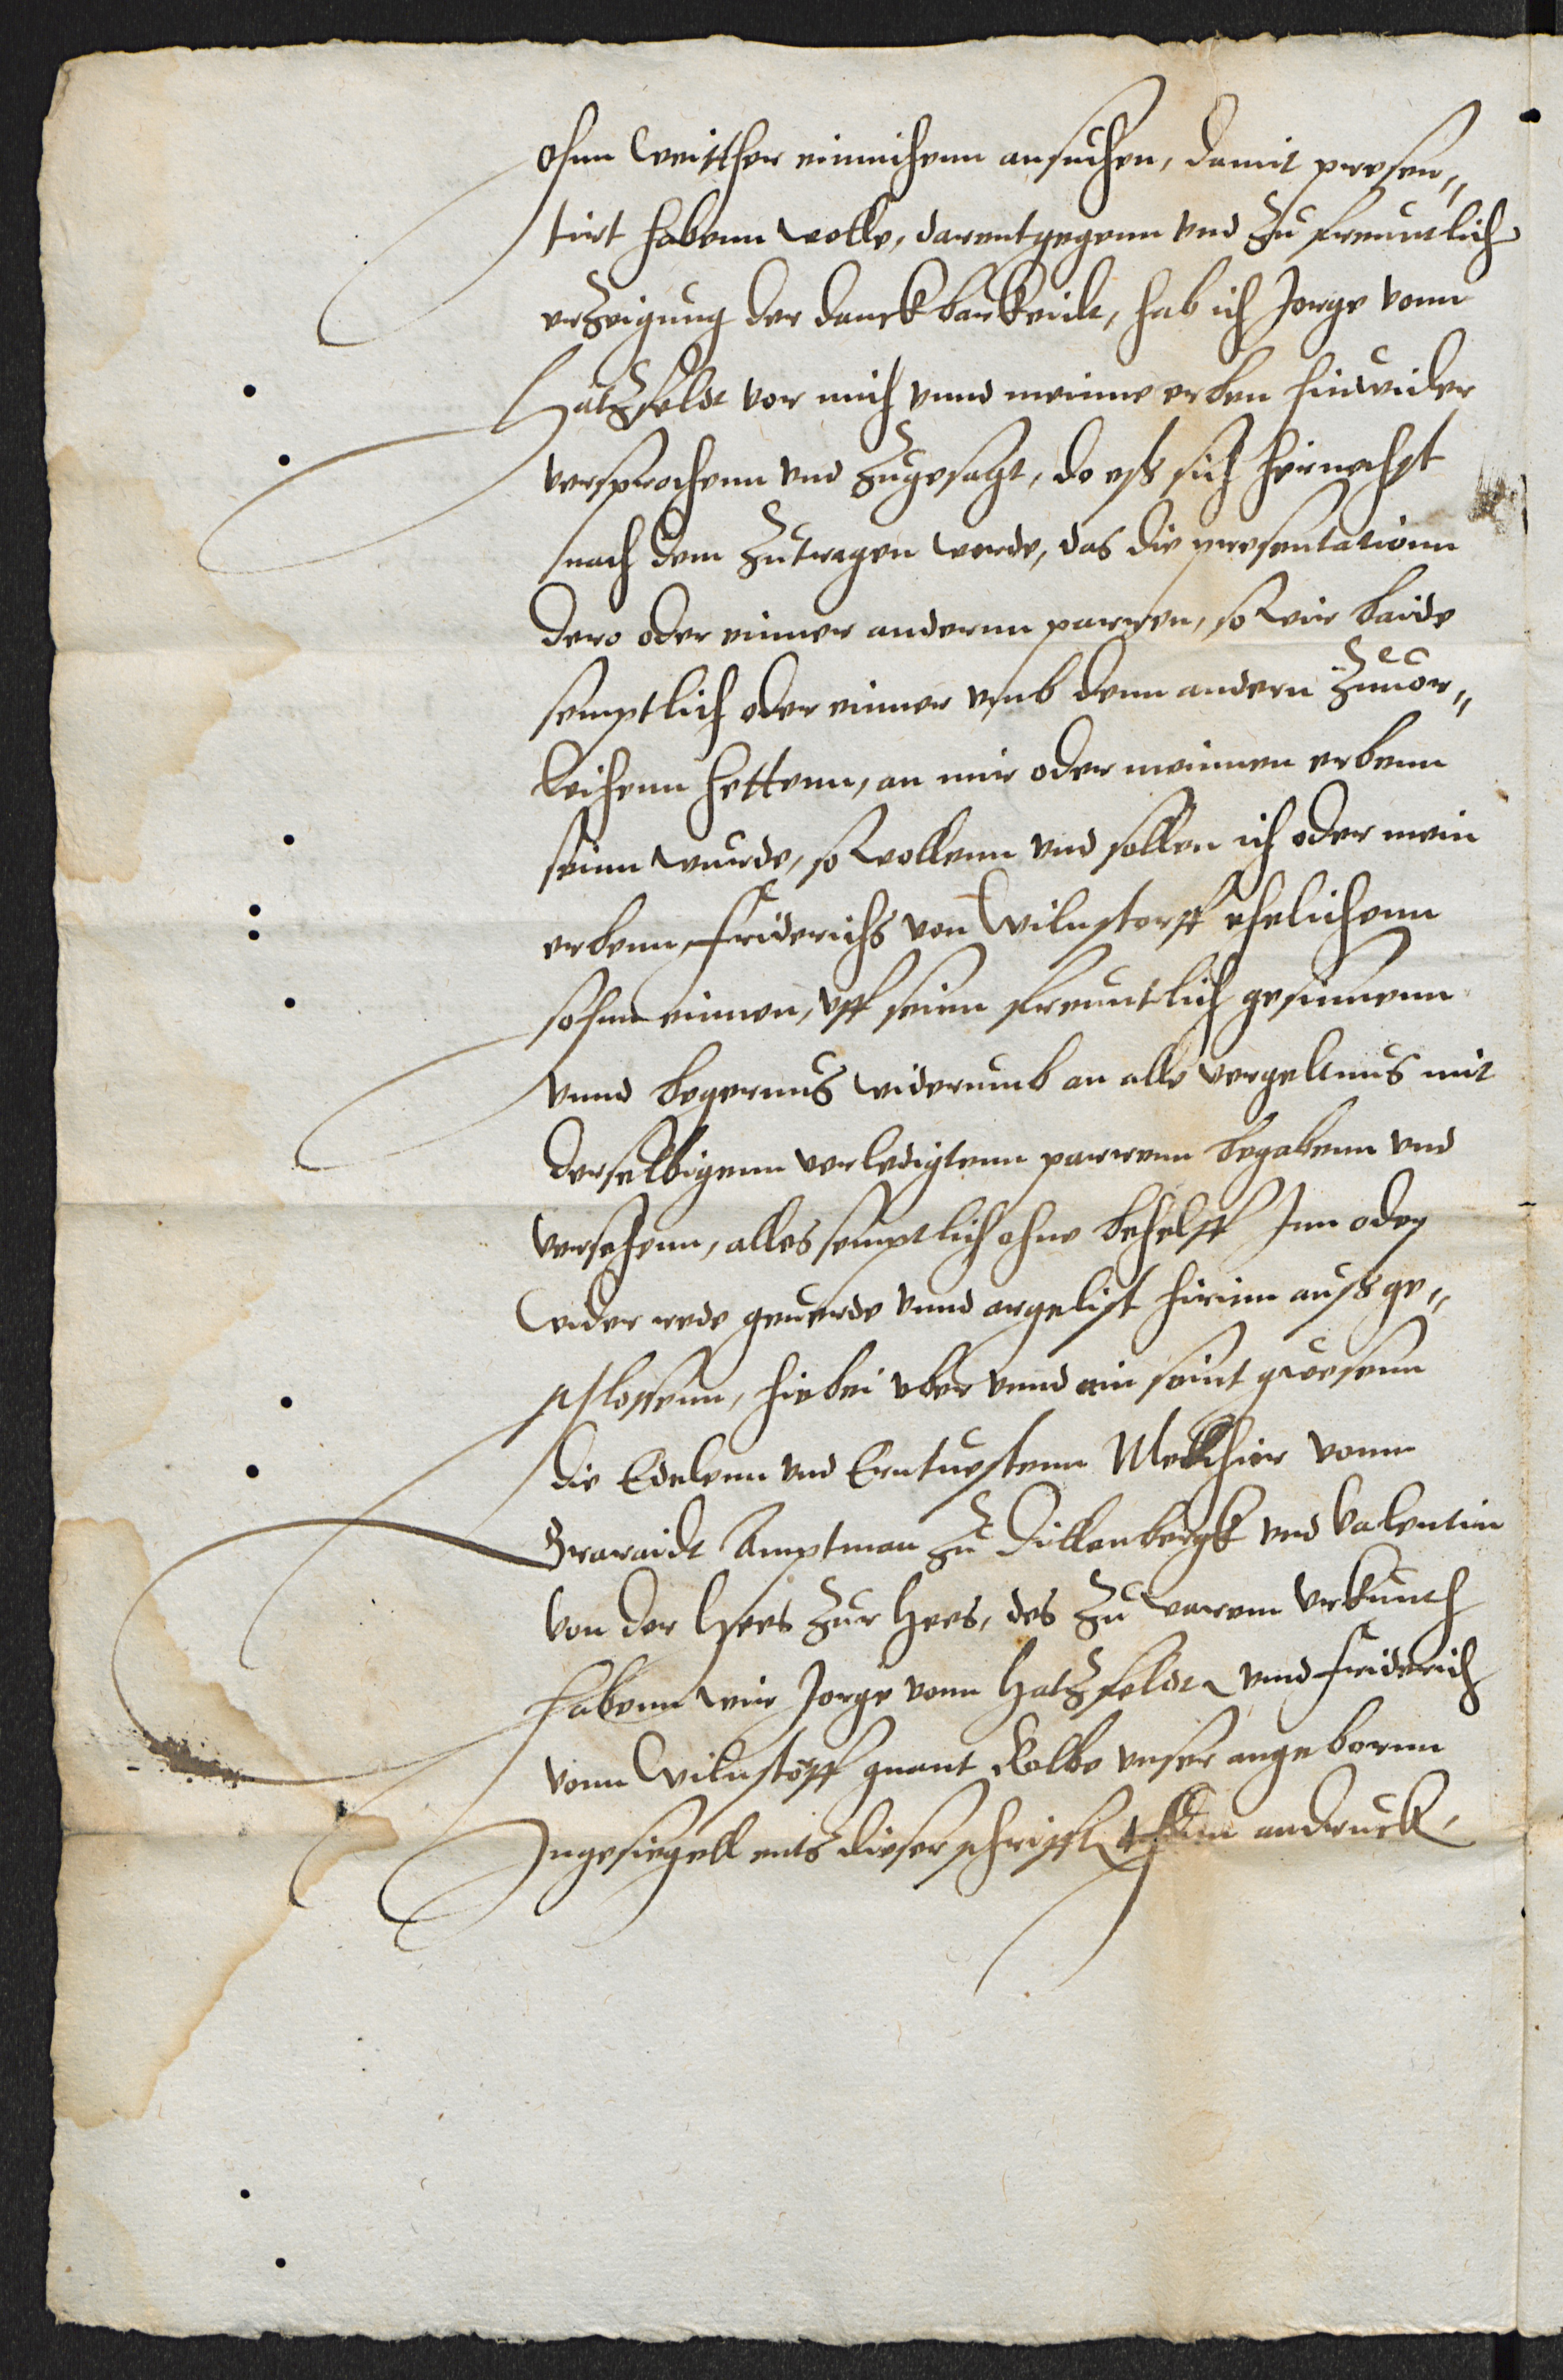 ohnn weitther einnichenn ansuchen, damit presen„
tirt habenn wolle, darentgegenn vnd zu freuntlich
erzeigung der danckbarkeidt, hab ich Jorge vonn
Hatzfeldt vor mich vnnd meinne erben hinwider
versprochenn vnd zugesagt, do eß sich hernechst
nach dem zutragen werde, das die presentationn
dero oder einner anderenn parren, so wir baide
semptlich oder einner vmb denn andern zuuor„
leihenn hettenn, an mir oder meinnen erbenn
seinn wurde, so wollenn vnd sollen ich oder mein
erbenn, Friderichs von Wilnstorff ehelichenn
sohnn einnen, vff seinn freuntlich gesinnenn
vnnd begernus widerumb an alle vergeltnus mit
derselbigenn verledigtenn parrenn begabenn vnd
versehenn, alles semptlich ohne behelff Inn oder
wider rede geuerde vnnd argelist hirinn aussge„
schlossenn, hiebei vber vnnd ann seint gewesenn
die Edelenn vnd Erntuestenn Melchior vonn
Graraidt Amptman zu Dillenbergk vnd Valentin
von der Hees zur Hees, des zu warem vrkunth
habenn wir Jorge vonn Hatzfeldt vnnd Friderich
vonn Wilnstorff gnant Kolbe vnser angebornn
Ingesiegell ents dieser schrifft thun andruck,